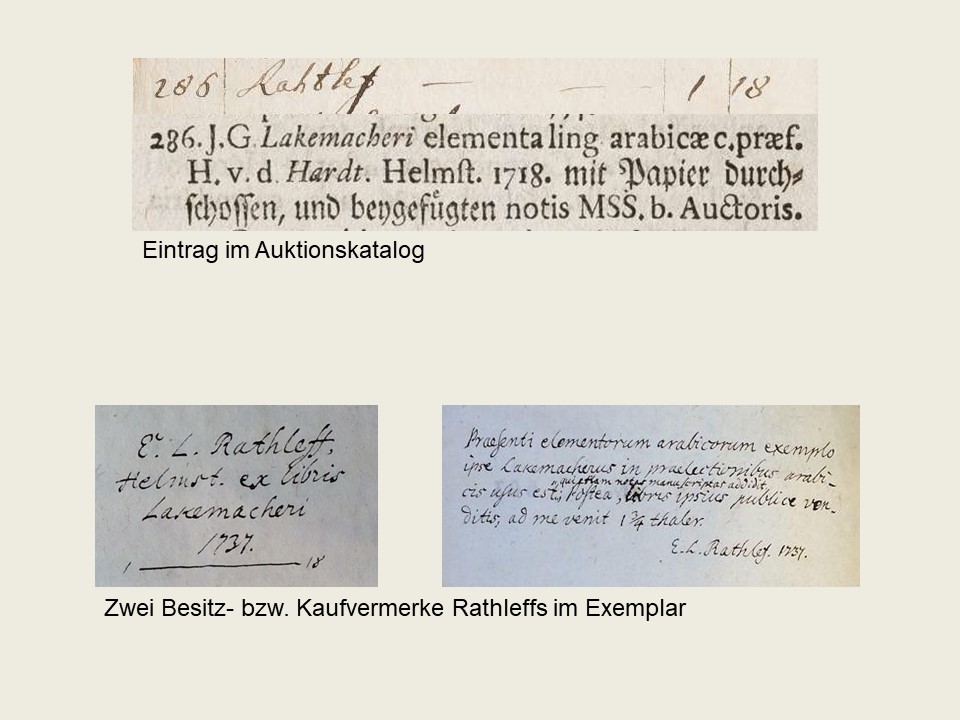 286 Rahtlef — — 1 18
286. J. G. Lakemacheri elementa ling. arabicæ c. præf.
H. v. d. Hardt. Helmst. 1718. mit Papier durch⸗
schossen, und beygefügten notis MSS. b. Auctoris.
Eintrag im Auktionskatalog
E. L. Rathleff,
Helmst. ex libris
Lakemacheri
1737.
1 — 18
Praesenti elementorum arabicorum exemplo
ipse Lakemacherus in praelectionibus arabi-
quietiam notas manuscriptas addidit,
cis usus est, Postea, libris ipsius publice ven-
ditis, ad me venit 1 3/4 thaler.
E. L. Rathlef. 1737.
Zwei Besitz- bzw. Kaufvermerke Rathleffs im Exemplar